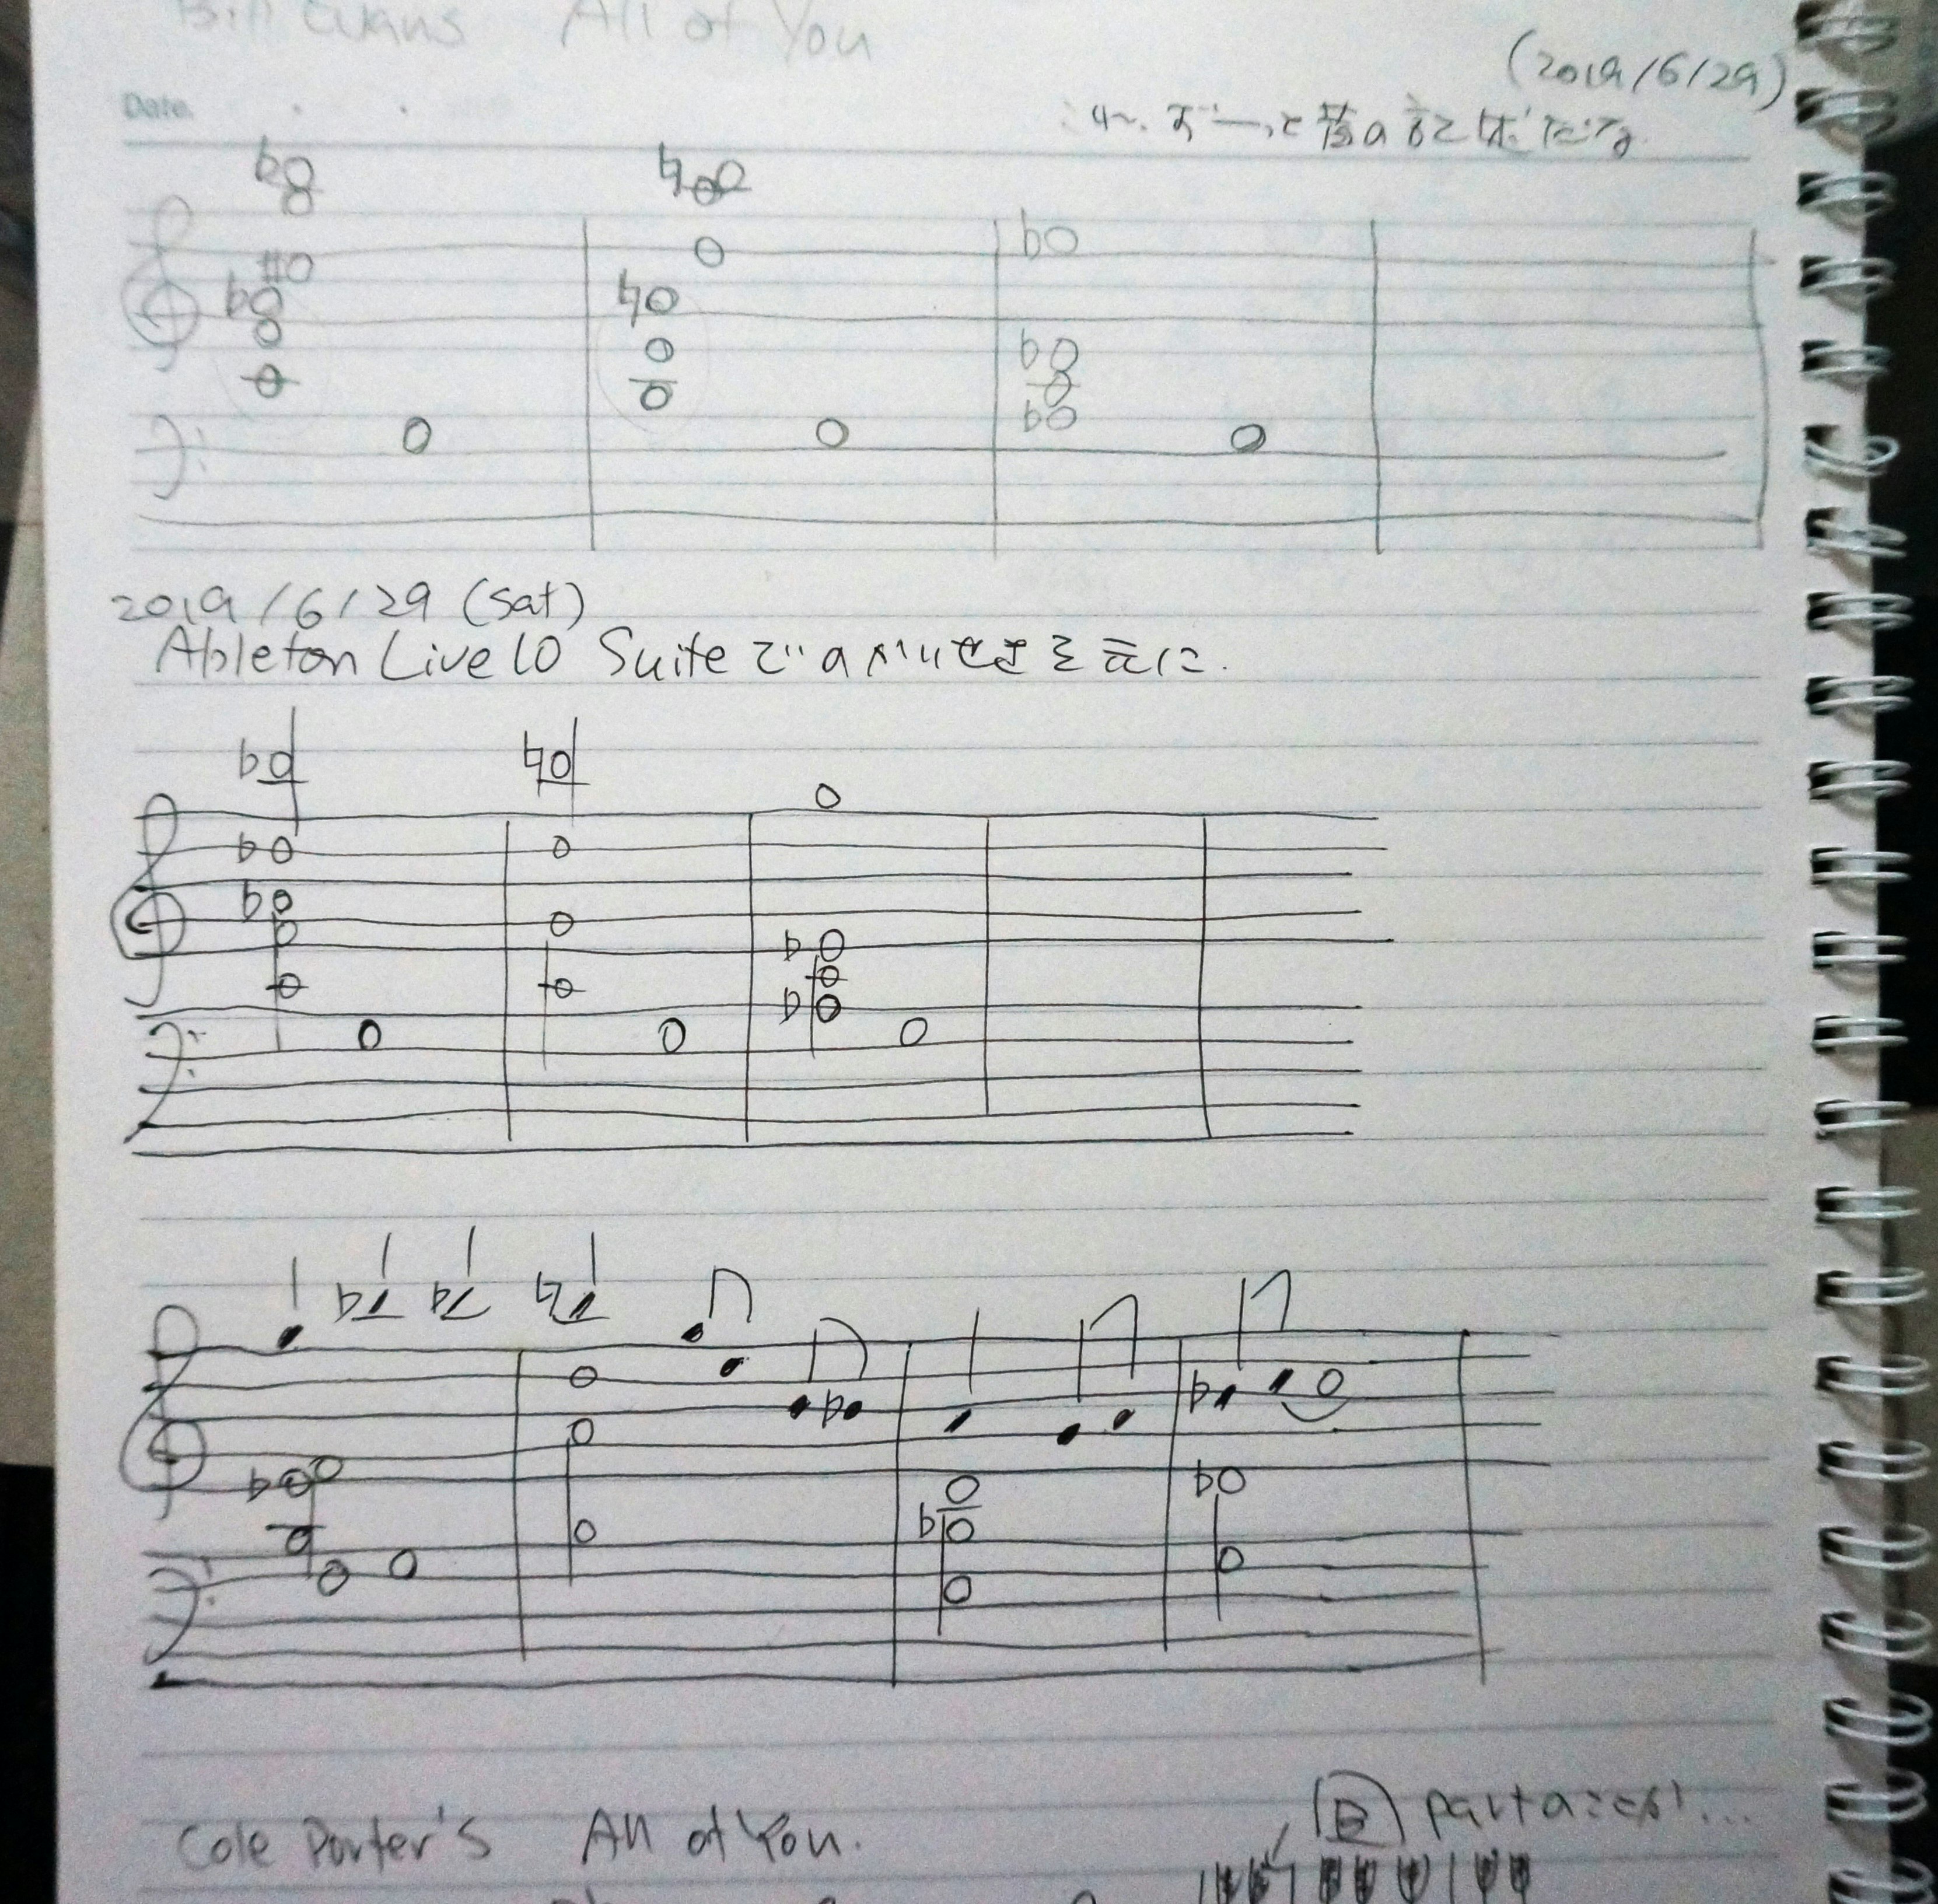 Bill Evans All of You
(2019/6/29)
Date.
2019/6/29 (Sat)
Ableton Live 10 Suite でのかいせきを元に.
Cole Porter's All of You.
B part のことか!...